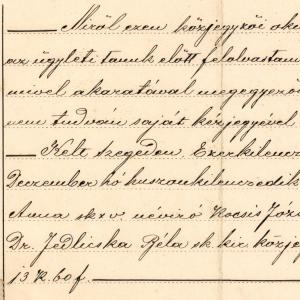 Miről ezen közjegyzői oki
az ügyleti tanuk előtt felolvastam
mivel akaratával megegyező
nem tudván saját kézjegyével
Kelt Szegeden, Ezerkilencz
Deczember hó huszonkilenczedik
Anna skv. néviró Kocsis Józs
Dr. Jedlicska Béla sk. kir. közje
13 K. 60 f.